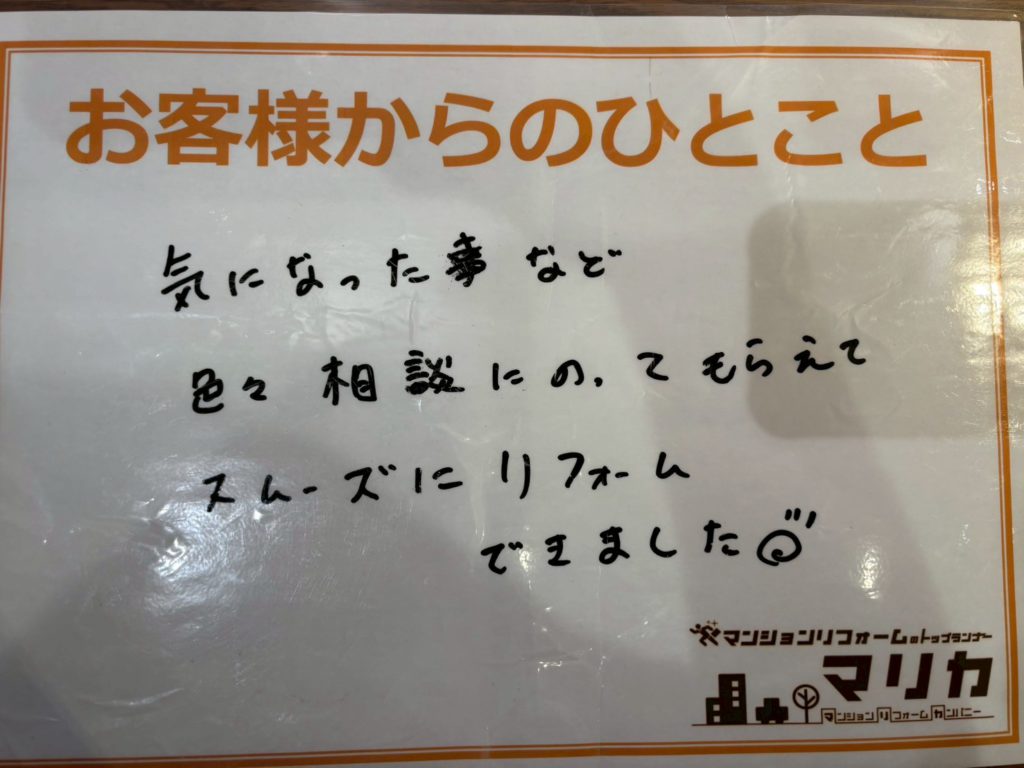 お客様からのひとこと
気になった事など
色々相談にのってもらえて
スムーズにリフォーム
できました
マンションリフォームのトップランナー
マリカ
マンションリフォームカンパニー